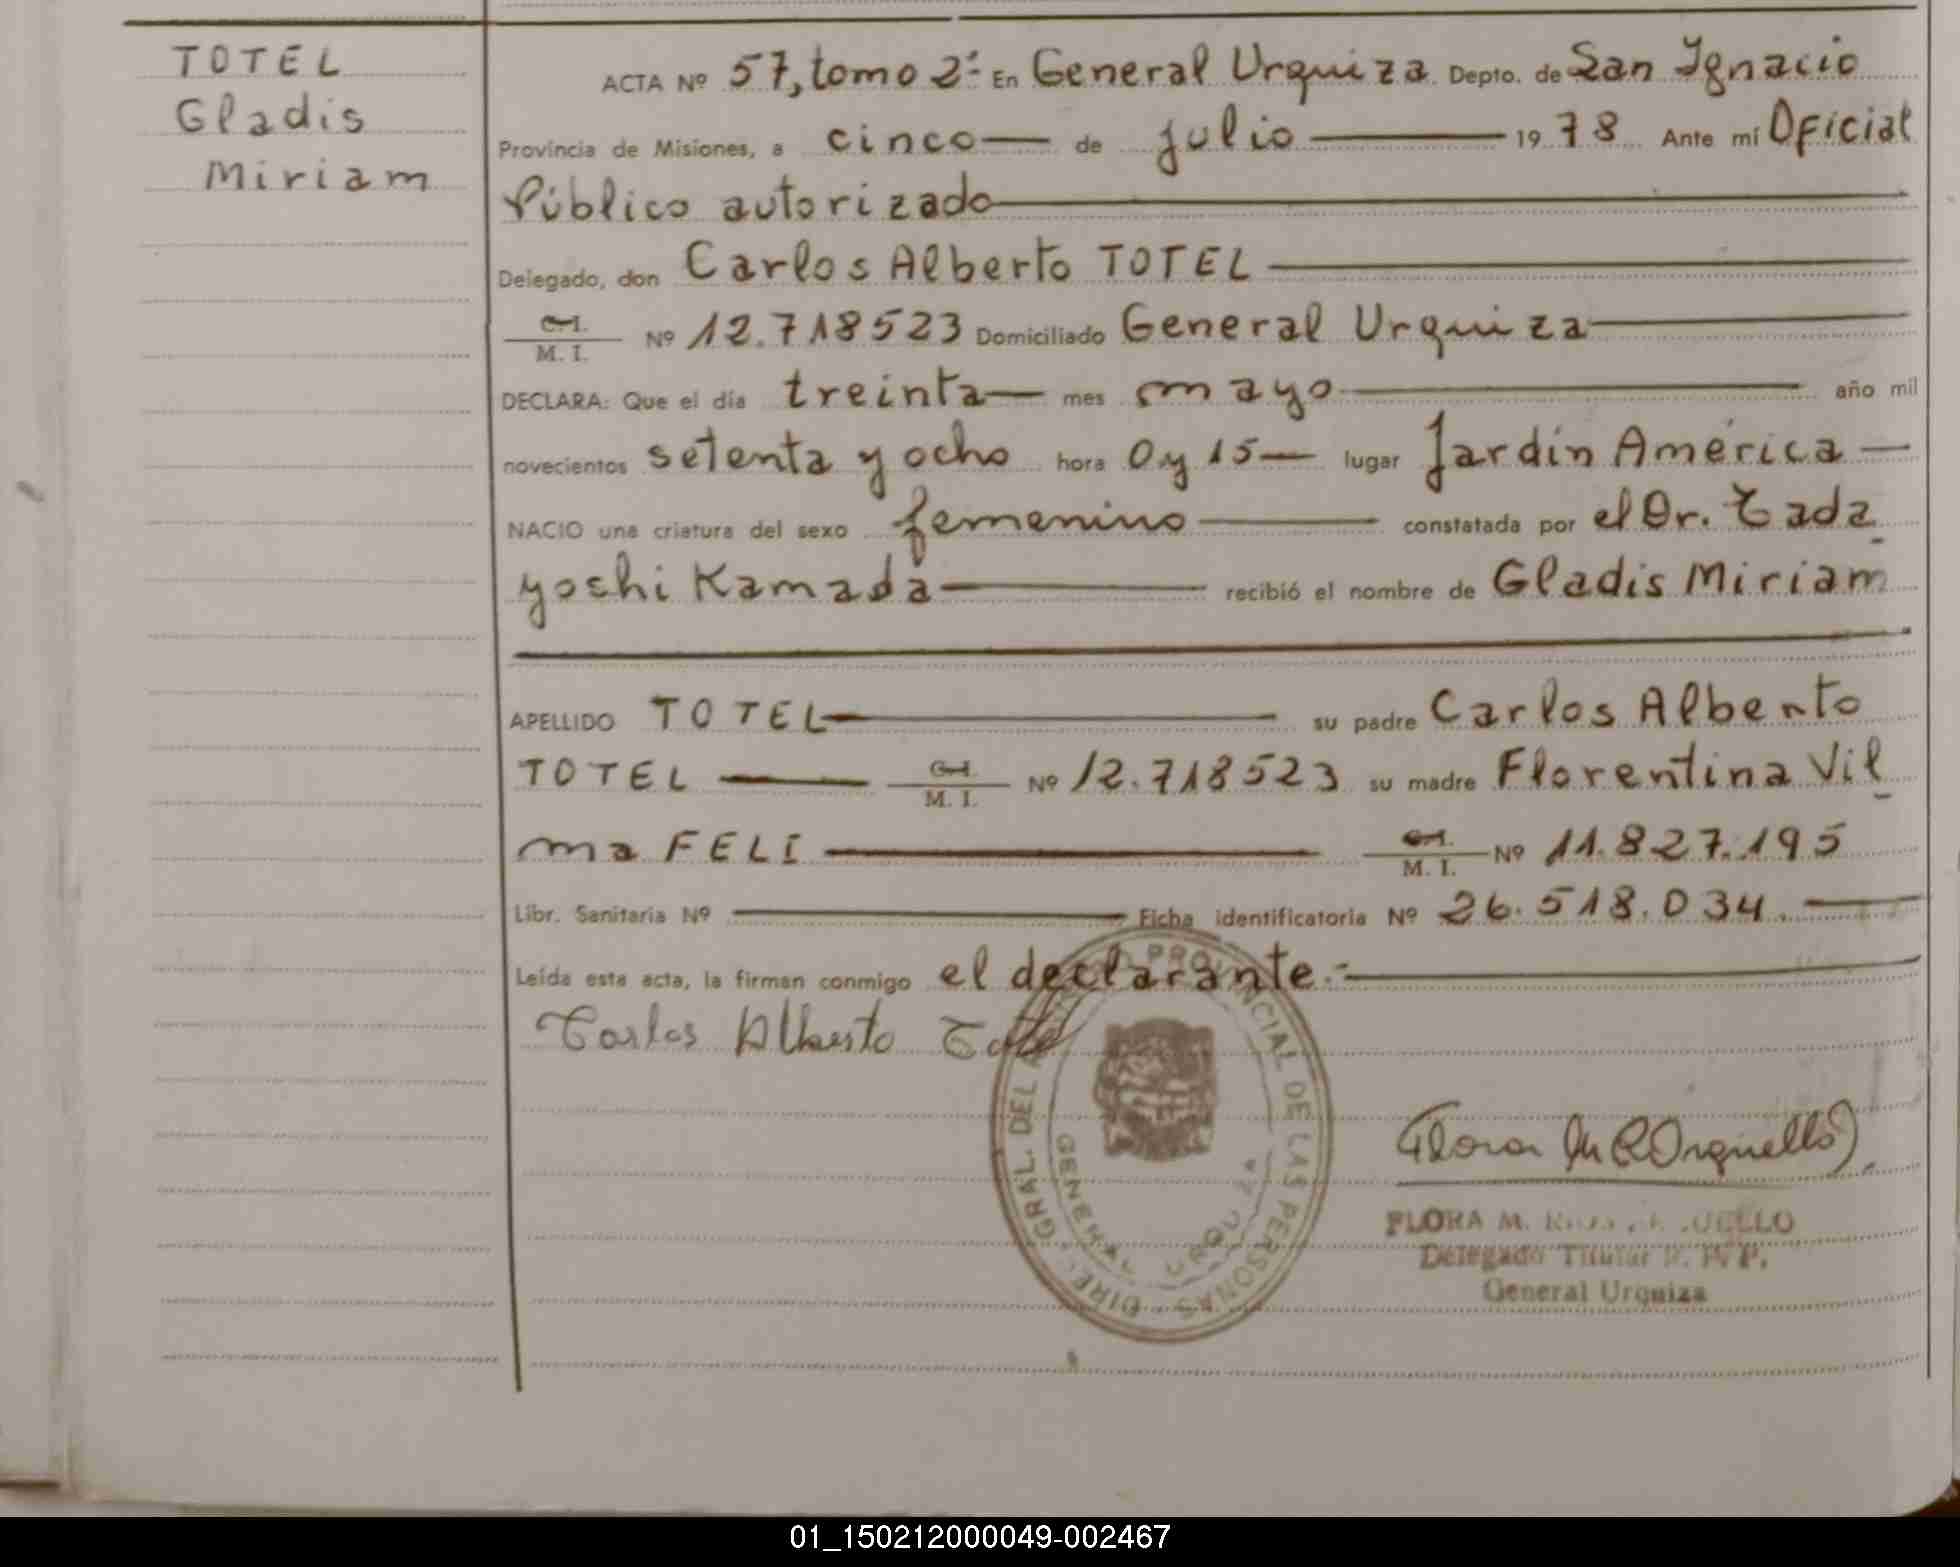 TOTEL
Gladis
Miriam
ACTA Nº 57, tomo 2º En General Urquiza Depto. de San Ignacio
Provincia de Misiones, a cinco de julio 1978 Ante mí Oficial
Público autorizado
Delegado, don Carlos Alberto TOTEL
C.I.
M. I. Nº 12.718523 Domiciliado General Urquiza
DECLARA: Que el día treinta mes mayo año mil
novecientos setenta y ocho hora 0 y 15 lugar Jardín América
NACIO una criatura del sexo femenino constatada por el Dr. Tada
yoshi Kamada recibió el nombre de Gladis Miriam
APELLIDO TOTEL su padre Carlos Alberto
TOTEL C.I.
M. I. Nº 12.718523 su madre Florentina Vil
ma FELI C.I.
M. I. Nº 11.827.195
Libr. Sanitaria Nº Ficha identificatoria Nº 26.518.034.
Leída esta acta, la firman conmigo el declarante.-
Carlos Alberto Totel
DIRE. GRAL. DEL PROVINCIAL DE LAS PERSONAS
GENERAL URQUIZA
FLORA M.
Delegado Titular
General Urquiza
01_150212000049-002467